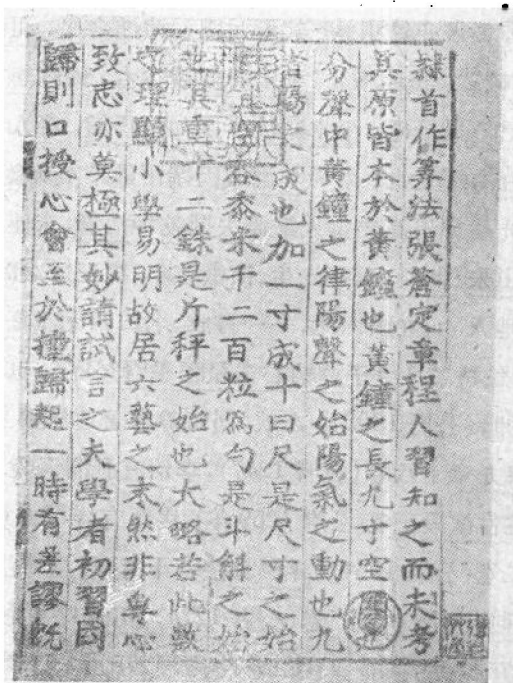 隸首作筭法張蒼定章程人習知之而未考
其原皆本於黃鐘也黃鐘之長九寸空
分聲中黃鐘之律陽聲之始陽氣之動也九
者陽之成也加一寸成十曰尺是尺寸之始
容黍米千二百粒為勺是斗斛之始
也其重十二銖是斤秤之始也大略若此數
之理顯小學易明故居六藝之末然非專心
致志亦莫極其妙請試言之夫學者初習因
歸則口授心會至於撞歸起一時有差謬既